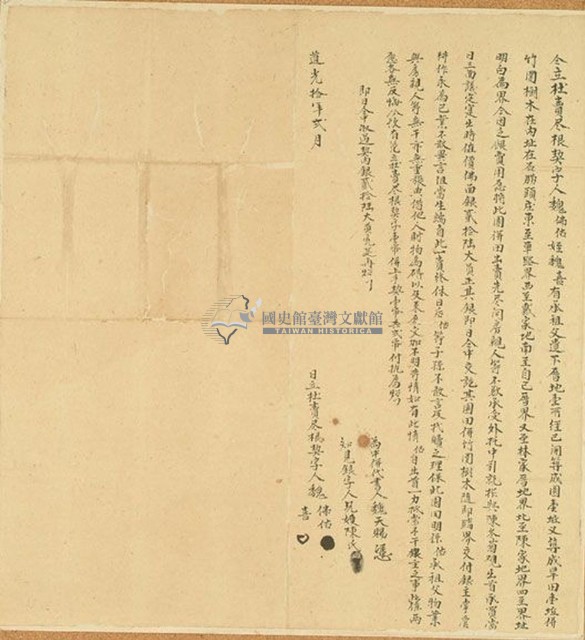 仝立杜賣尽根契字人魏佛佑姪魏喜有承祖父遺下厝地壹所經已開築成園壹坵又築成旱田壹坵併
竹圍樹木在內址在庄東至車路界西至戴家地南至自己厝界又至林家厝地界北至陳家地界四至界址
明白為界今因乏銀費用愿將此園併田出賣先尽問房親人等不欲承受外托中引就招與陳出首承買當
日三面議定定出時值價佛面銀貳拾陸大員正其銀即日仝中交訖其園田併竹圍樹木隨即踏界交付銀主掌管
耕作永為己業不敢異言阻當生端自此一賣終休日后佑等子孫不敢言及找贖之理保此園田明係佑承祖父物業
與房親人等無干亦無重張典借他人財物為碍以及來歷交加不明等情如有此情佑自出首一力抵當不干銀主之事此係兩
愿各無反悔今欲有凭立杜賣尽根契字壹帋併上手契壹帋共貳帋付执為炤
即日仝中收過契面銀貳拾陸大員完足再炤
為中併代書人魏天賜
知見銀字人兄嫂陳氏
日立杜賣尽根契字人魏佛佑
喜
道光拾年貳月
國史館臺灣文獻館
TAIWAN HISTORICA